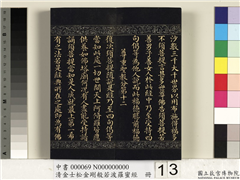 沙數三千大千世界以用布施得福多
不須菩提言甚多世尊佛告須菩提若
善男子善女人於此經中乃至受持四
句偈等為他人說而此福德勝前福德
尊重正教分第十二
復次須菩提隨說是經乃至四句偈等
當知此處一切世間天人阿修羅皆應
供養如佛塔廟何況有人盡能受持讀
誦須菩提當知是人成就最上第一希
有之法若是經典所在之處即為有佛
中書 000069 N000000000
清金士松金剛般若波羅蜜經 冊
13
國立故宮博物院